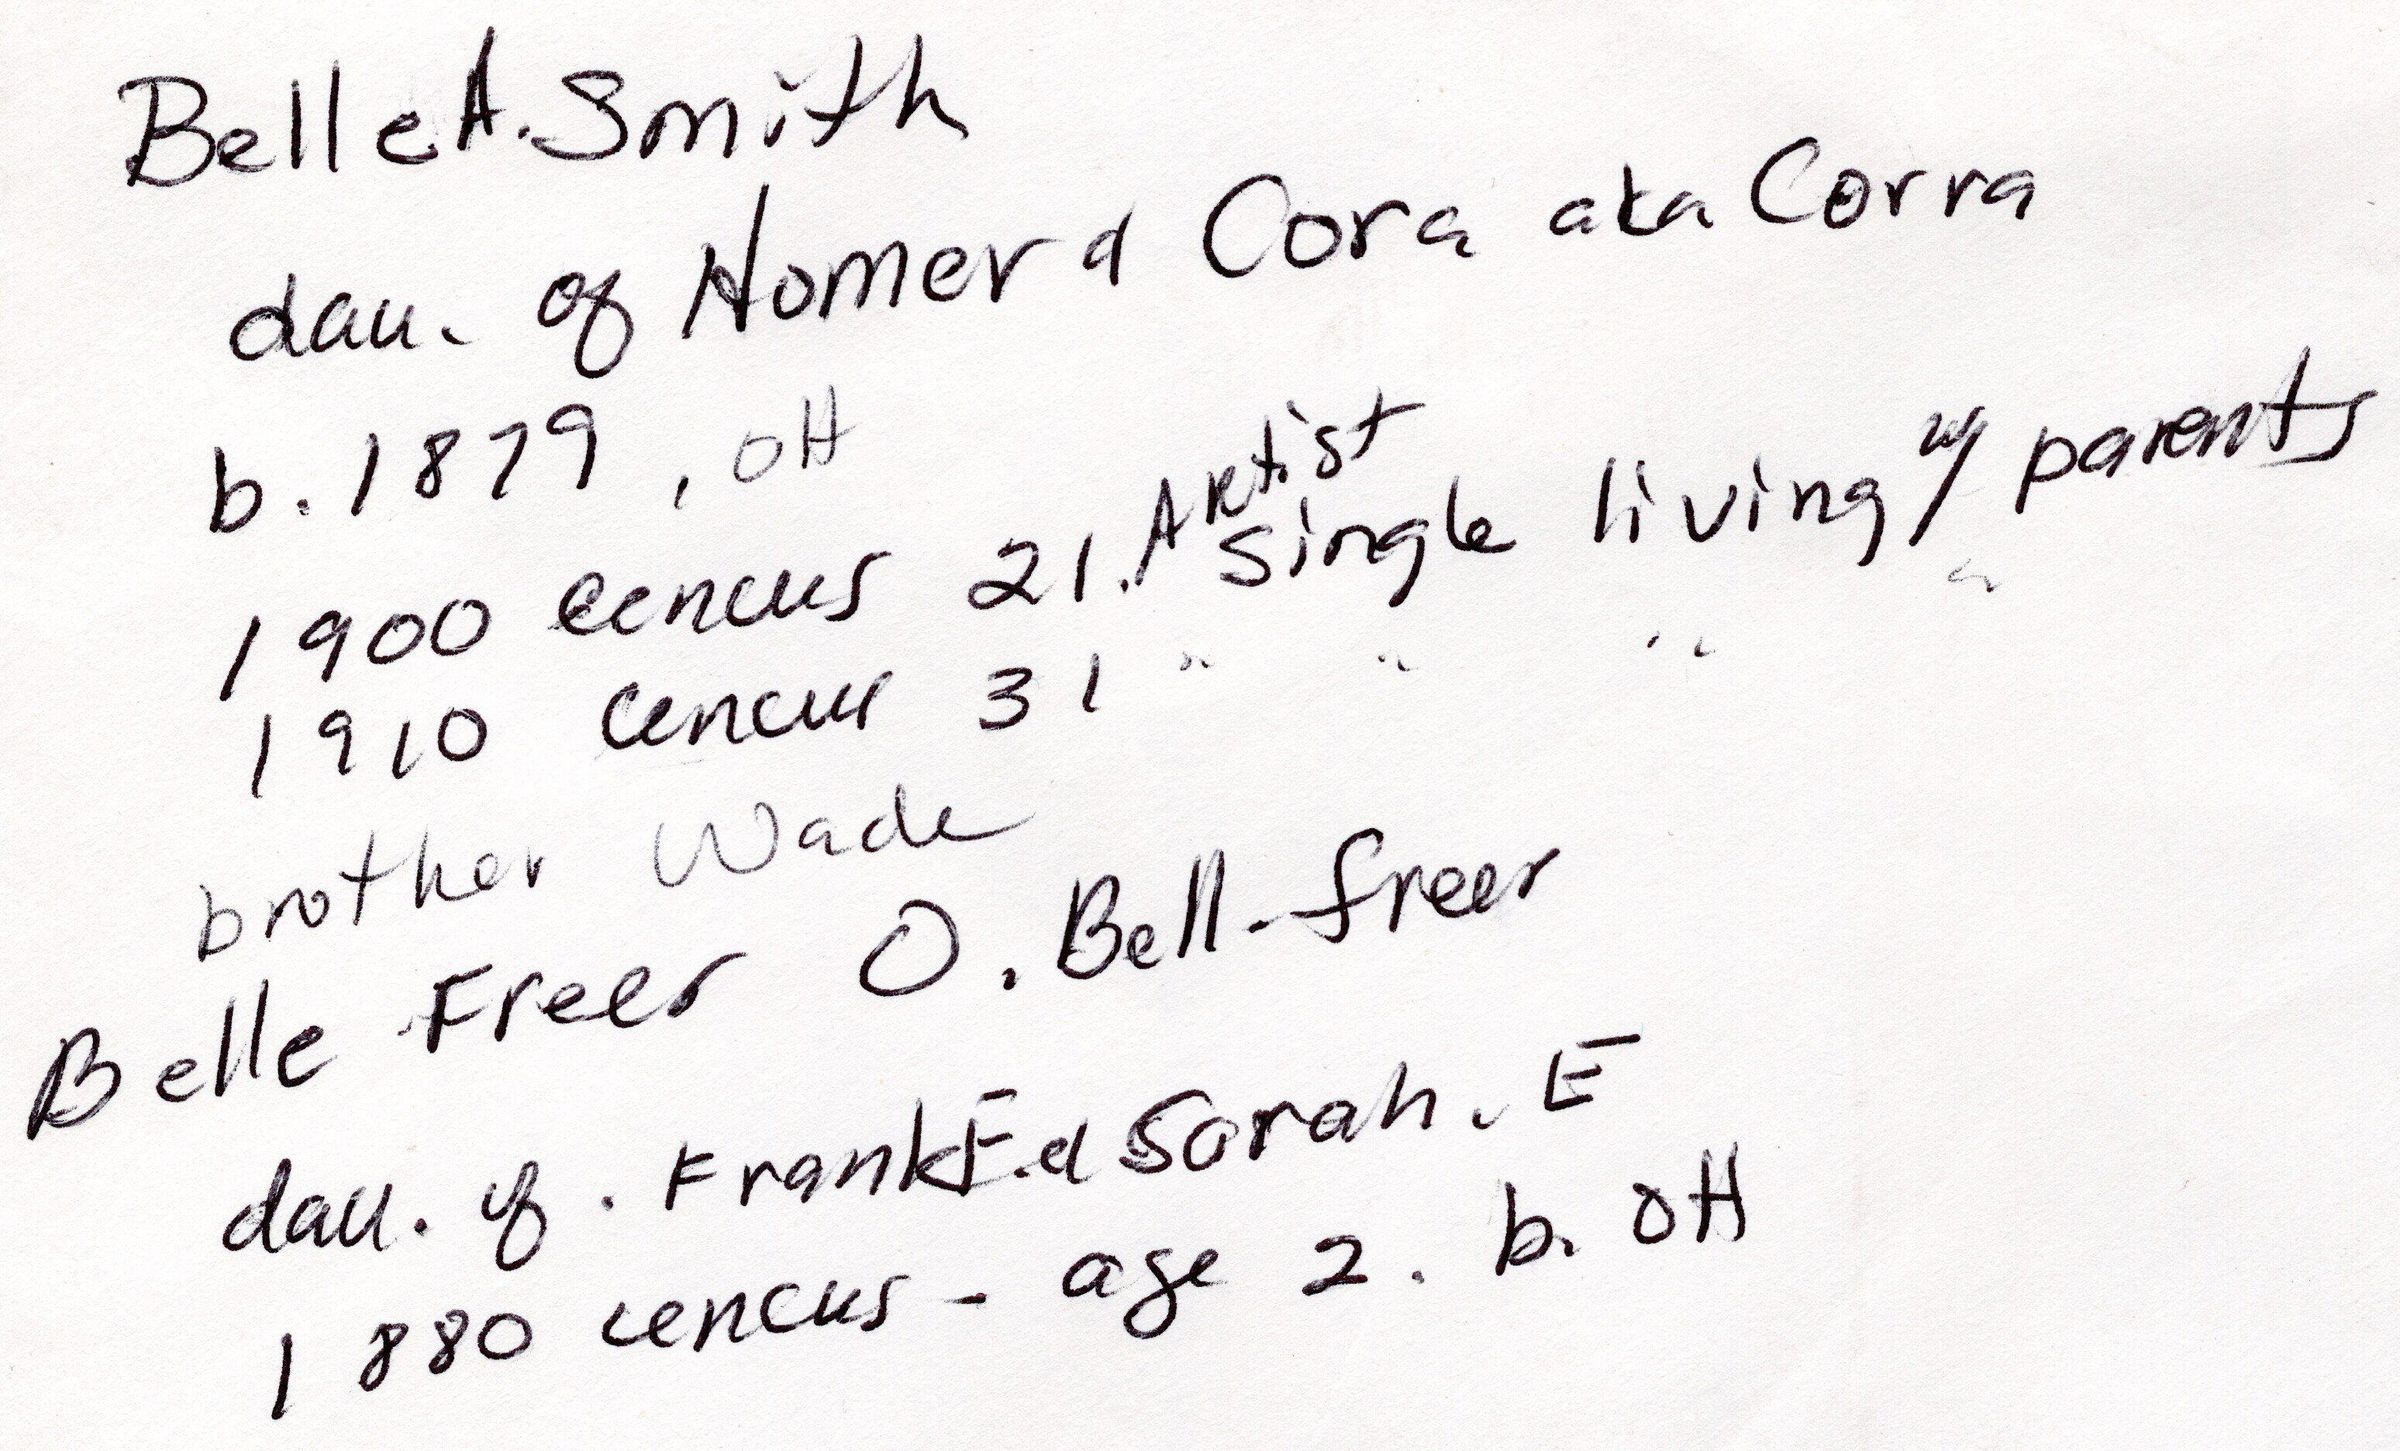 Belle A. Smith
dau. of Homer & Cora aka Corra
b. 1879, OH
1900 cencus 21. Artist single living w/ parents
1910 cencus 31 " " " "
brother Wade
Belle Freer O. Bell-freer
dau. of. Frank E. & Sarah. E
1880 cencus - age 2. b. OH